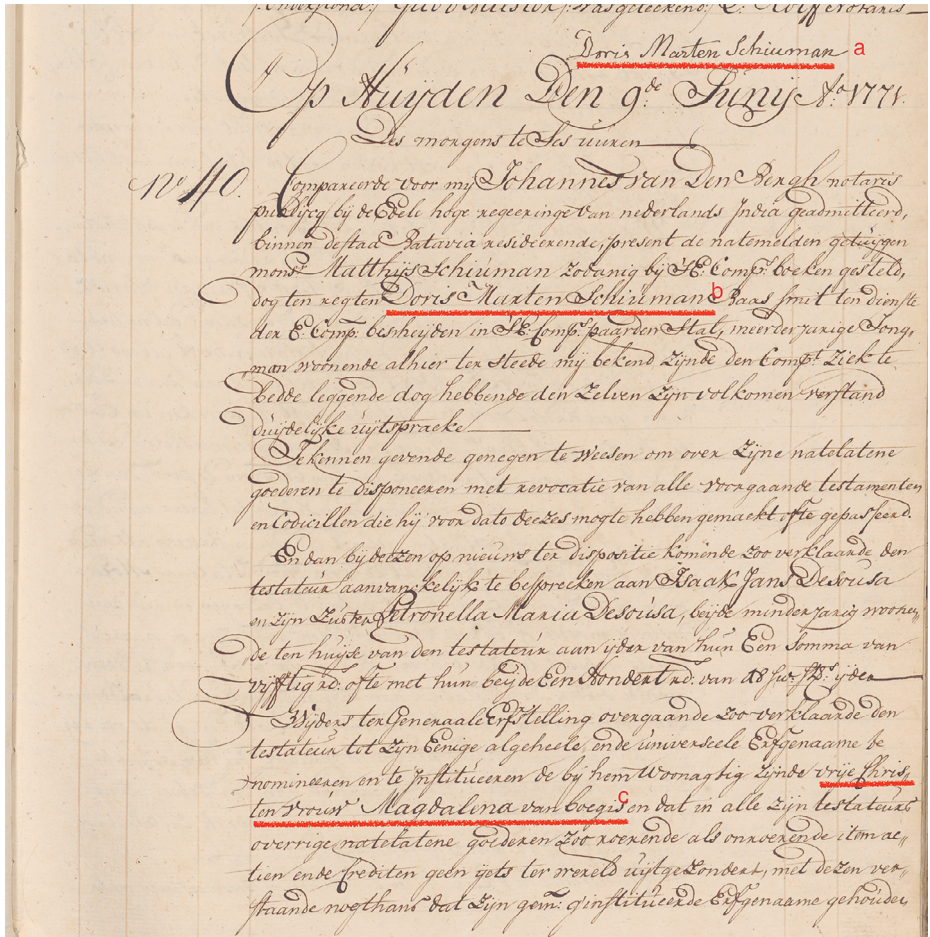 Doris Marten Schiuman a
Op Huyden Den 9.de Junij Ao. 1771.
Des morgens te Ses uuren
No. 40. Compareerde voor my Johannes van Den Bergh notaris
publycq bij de Edele hoge regeeringe van nederlands India geadmitteerd,
binnen de stad Batavia resideerende, present de natemelden getuijgen
monsr. Matthijs Schiuman zodanig bij S'E: Comps. boeken gesteld,
dog ten regten Doris Marten Schiuman b Baas smit ten dienste
der E: Comp: bescheyden in S'E: Comps: paarden Stal, meerderjarige Jong,
man woonende alhier ter steede my bekend zijnde den Compt. Ziek te
bedde leggende dog hebbende den zelven zijn volkomen verstand
duijdelijke uijtspraeke
Te kennen gevende genegen te weesen om over zijne natelatene
goederen te disponeeren met revocatie van alle voorgaande testamenten
en Codicillen die hij voor dato deezes mogte hebben gemaekt ofte gepasseerd.
En dan bij deezen op nieuws ter dispositie komende zoo verklaarde den
testateur aanvankelijk te bespreeken aan Isaak Jans DeSousa
en zijn Zuster Petronella Maria DeSousa, beijde minderjarig woonen,,
de ten huijse van den testateur aan ijder van hun Een Somma van
vijfftig rd: ofte met hun beijde Een Hondert rd: van 48 sws. St: ijder
Wijders ter Generaale Erfstelling overgaande zoo verklaarde den
testateur tot zijn Eenige algeheele, ende universeele Erfgenaame te
nomineeren en te Institueeren de bij hem woonagtig zijnde vrije Chris,,
ten vrouw Magdalena van boegis c en dat in alle zijn testateurs
overrige natelatene goederen zoo roerende als onroerende item ac,,
tien ende Crediten geen yets ter wereld uijtgezondert, met dezen ver,,
staande nogthans dat zijn gem: g'institueerde Erfgenaame gehouden